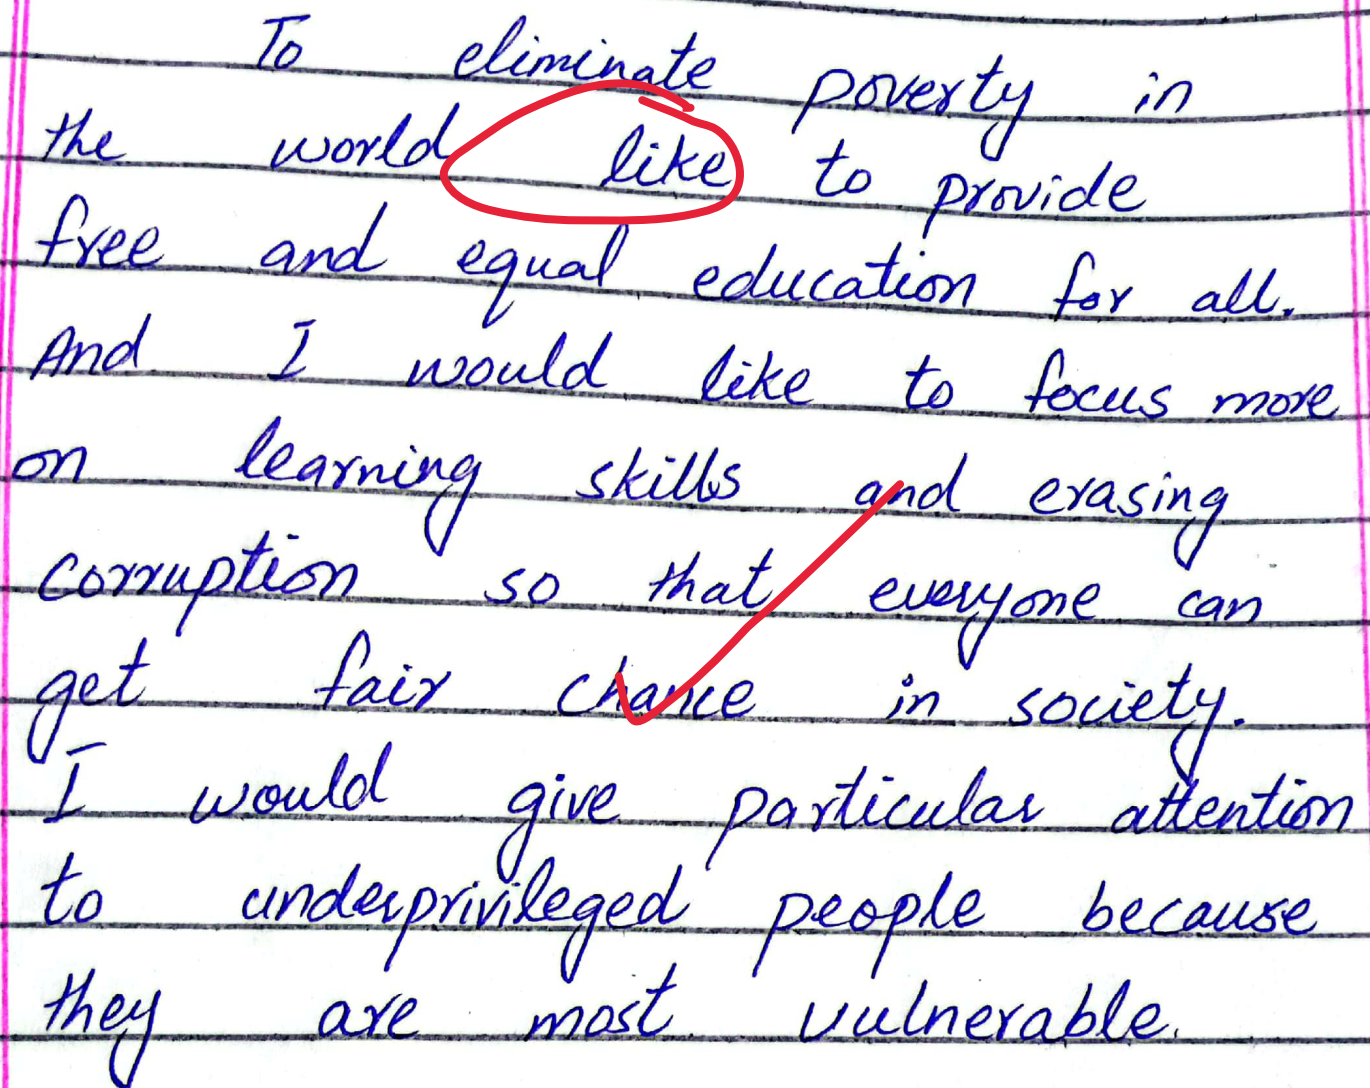 To eliminate poverty in
the world like to provide
free and equal education for all.
And I would like to focus more
on learning skills and erasing
corruption so that everyone can
get fair chance in society.
I would give particular attention
to underprivileged people because
they are most vulnerable.